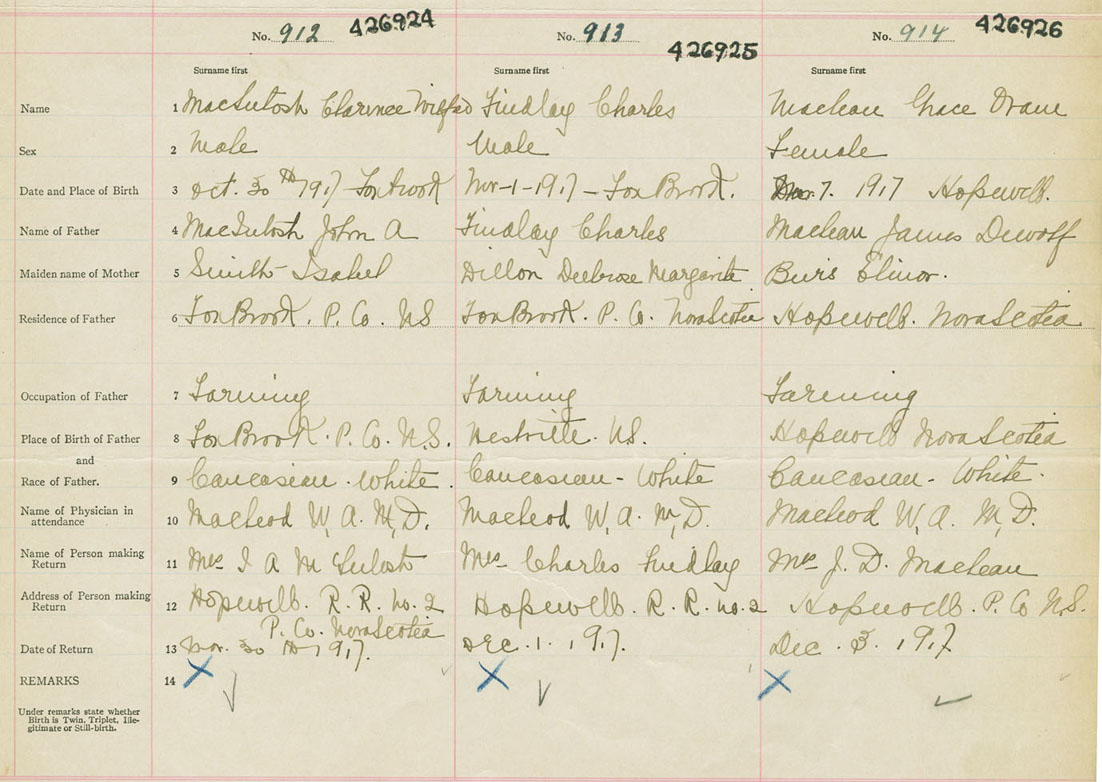 No. 912 426924 No. 913 426925 No. 914 426926
Surname first Surname first Surname first
Name 1 MacIntosh Clarence Wilfred Findlay Charles Maclean Grace
Sex 2 Male Male Female
Date and Place of Birth 3 Oct. 30th 1917 Foxbrook Nov-1-1917 - Fox Brook. 7. 1917 Hopewell.
Name of Father 4 MacIntosh John A Findlay Charles Maclean James Dewolf
Maiden name of Mother 5 Smith - Isabel Dillon Margarite Elinor.
Residence of Father 6 Fox Brook. P. Co. NS Fox Brook. P. Co. Nova Scotia Hopewell. Nova Scotia
Occupation of Father 7 Farming Farming Farming
Place of Birth of Father 8 Fox Brook. P. Co. N.S. Westville. NS. Hopewell Nova Scotia
and
Race of Father. 9 Caucasian. White. Caucasian - White Caucasian - White.
Name of Physician in
attendance 10 Macleod W. A. M.D. Macleod W. A. M.D. Macleod W. A. M.D.
Name of Person making
Return 11 Mrs A McIntosh Mrs Charles Findlay Mrs J. D. Maclean
Address of Person making
Return 12 Hopewell. R. R. no. 2 Hopewell. R. R. no. 2 Hopewell. P. Co N.S.
P. Co. Nova Scotia
Date of Return 13 Nov. 30th 1917. Dec. 1. 1917. Dec. 3. 1917
REMARKS 14
Under remarks state whether
Birth is Twin, Triplet, Ille-
gitimate or Still-birth.